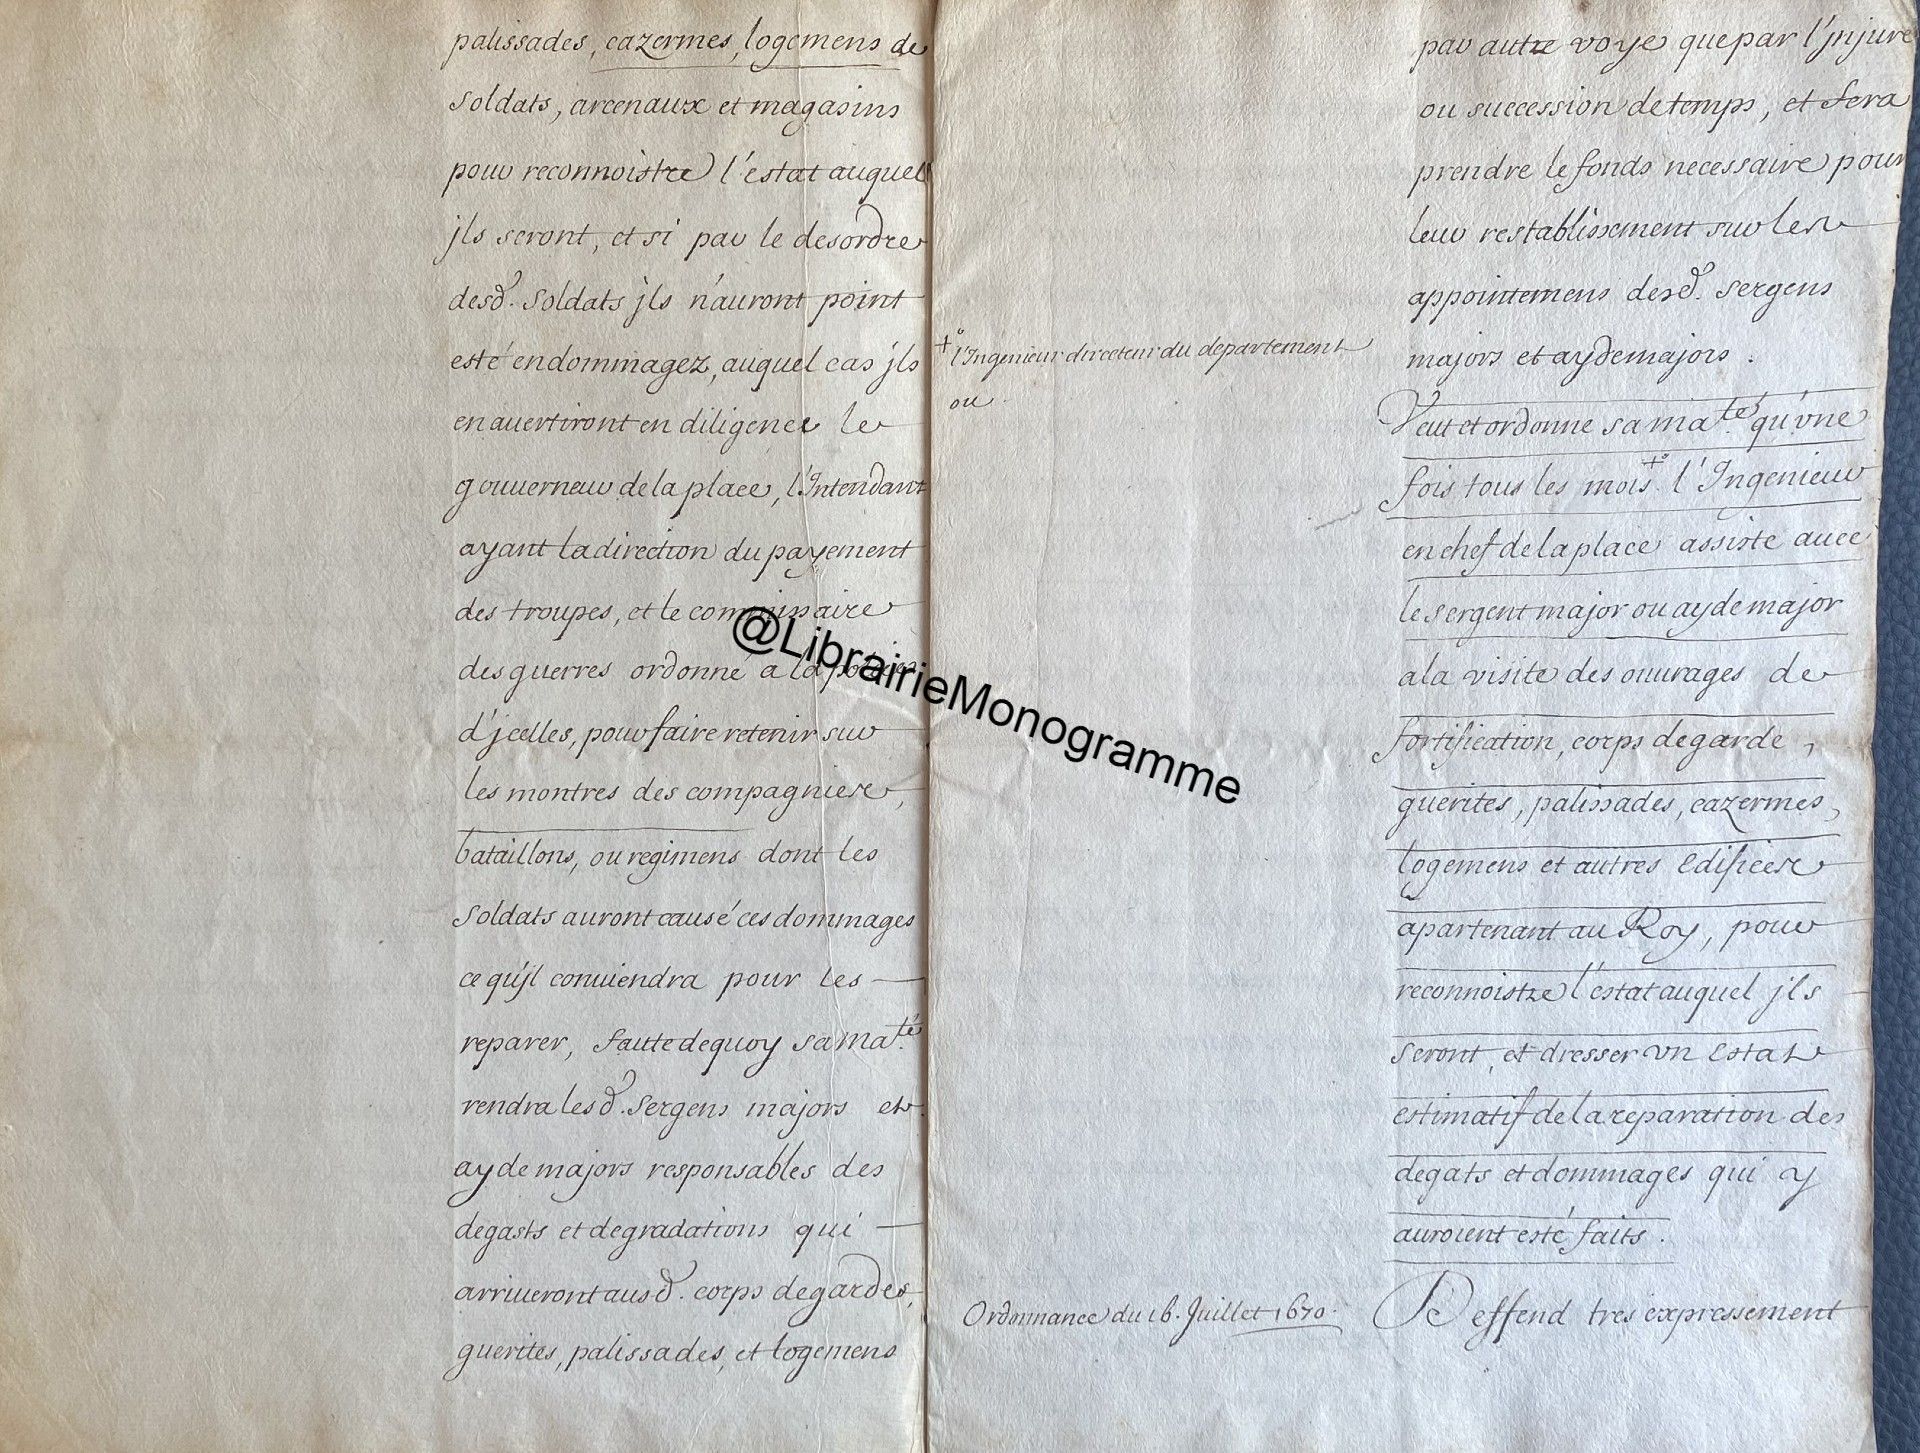 palissades, cazermes, logemens de
soldats, arcenaux et magasins
pour reconnoistre l'estat auquel
jls seront, et si par le desordre
desd. soldats jls n'auront point
esté endommagez, auquel cas jls
en auertiront en diligence le
gouuerneur de la place, l'Intendant
ayant la direction du payement
des troupes, et le commissaire
des guerres ordonné a la police
d'jcelles, pour faire retenir sur
les montres des compagnies,
bataillons, ou regimens dont les
soldats auront causé ces dommages
ce qu'jl conuiendra pour les
reparer, faute de quoy sa Ma.té
rendra lesd. sergens majors et
ayde majors responsables des
degasts et degradations qui
arriueront ausd. corps de gardes,
guerites, palissades, et logemens
par autre voye que par l'jnjure
ou succession de temps, et fera
prendre le fonds necessaire pour
leur restablissement sur les
appointemens desd. sergens
majors et ayde majors.
+° l'Ingenieur directeur du departement
ou
Veut et ordonne sa ma.té qu'vne
fois tous les mois +° l'Ingenieur
en chef de la place assiste auec
le sergent major ou ayde major
a la visite des ouurages de
fortification, corps de garde,
guerites, palissades, cazermes,
logemens et autres edifices
apartenant au Roy, pour
reconnoistre l'estat auquel jls
seront, et dresser vn estat
estimatif de la reparation des
degats et dommages qui y
auroient esté faits.
Ordonnance du 16. Juillet 1670.
Deffend tres expressement
@LibrairieMonogramme